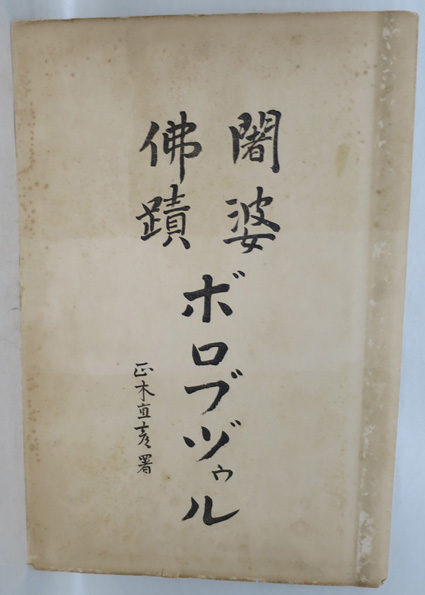 闍婆
佛蹟
ボロブヅゥル
正木直彦署